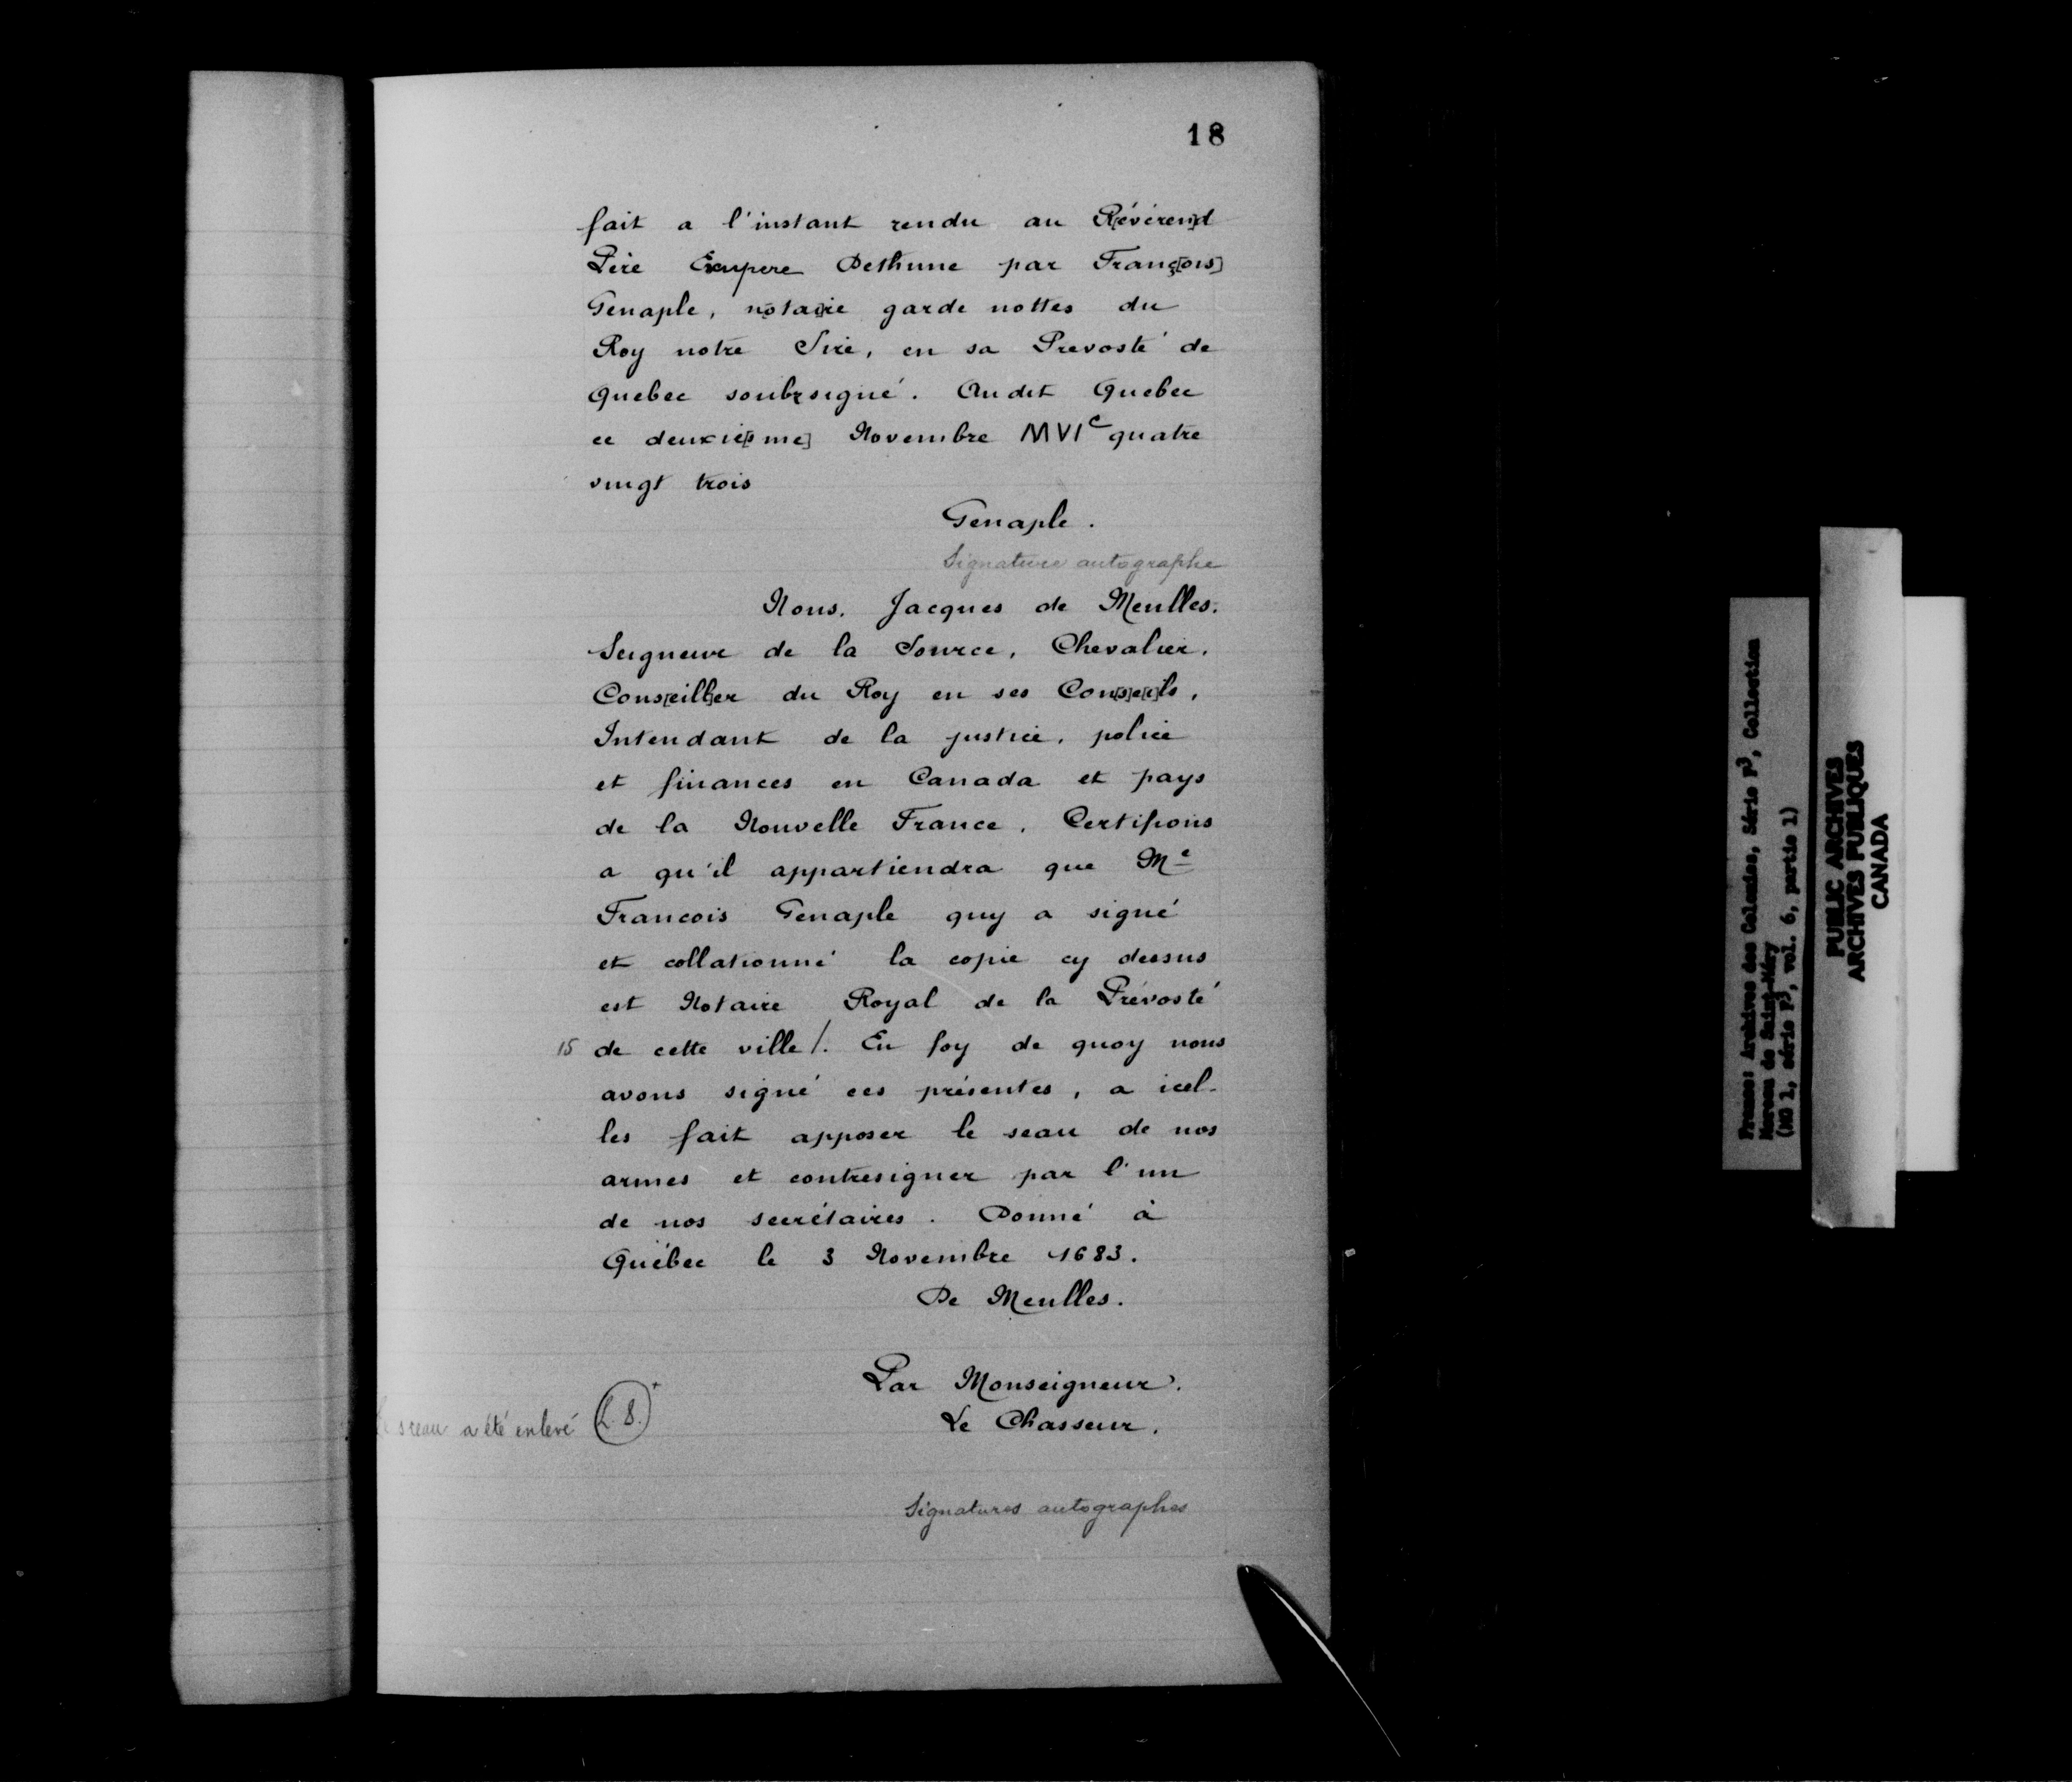 18
fait a l'instant rendu au R[évéren]d
Père Exupere Dethune par Franç[ois]
Genaple, nota[i]re garde nottes du
Roy notre Sire, en sa Prevosté de
Quebec soubzsigné. Audit Quebec
ce deuxie[s me] Novembre MVIc quatre
vingt trois
Genaple.
Signature autographe
Nous. Jacques de Meulles.
Seigneur de la Source, Chevalier,
Cons[eill]er du Roy en ses Con[s]e[i]ls,
Intendant de la justice, police
et finances en Canada et pays
de la Nouvelle France. Certifions
a qu'il appartiendra que Me
Francois Genaple quy a signé
et collationné la copie cy dessus
est Notaire Royal de la Prévosté
15 de cette ville/. En foy de quoy nous
avons signé ces présentes, a icel-
les fait apposer le seau de nos
armes et contresigner par l'un
de nos secrétaires. Donné à
Québec le 3 Novembre 1683.
De Meulles.
Par Monseigneur.
Le Chasseur.
Le sceau a été enlevé (L. S.)
Signatures autographes
France: Archives des Colonies, Série F3, Collection
Moreau de Saint-Méry
(MG 1, série F3, vol. 6, partie 1)
PUBLIC ARCHIVES
ARCHIVES PUBLIQUES
CANADA